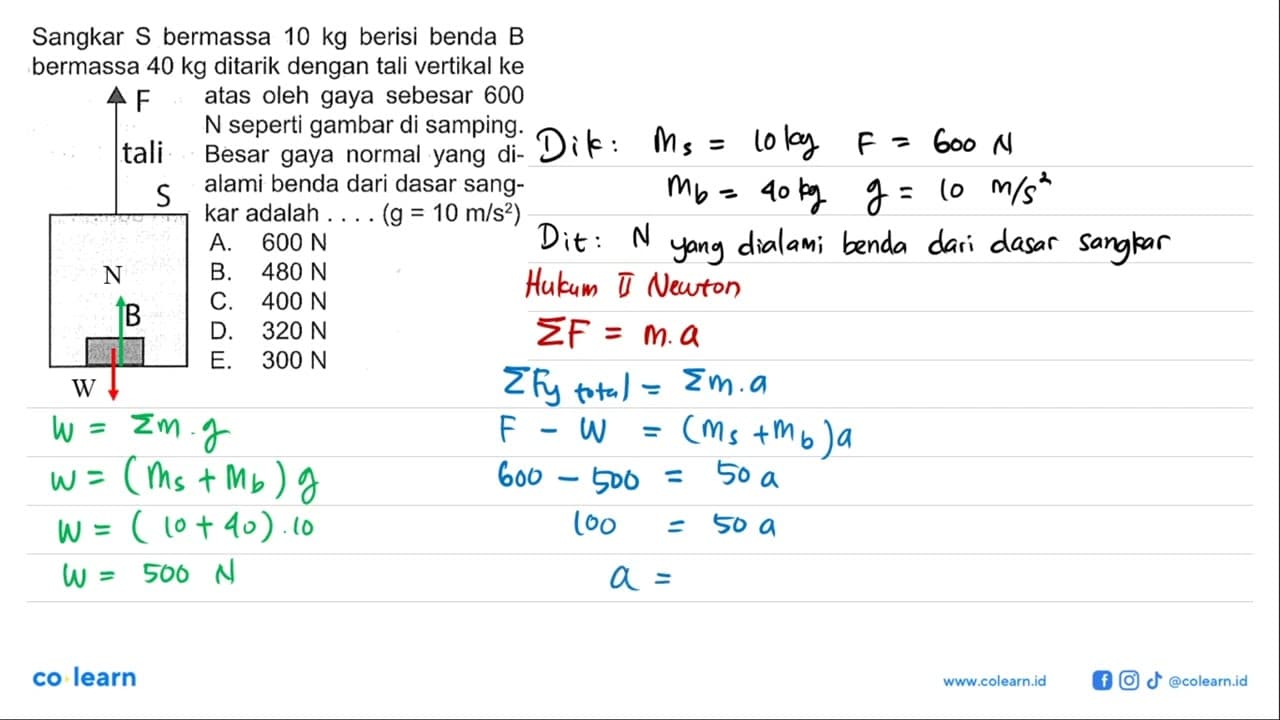 Sangkar S bermassa 10 kg berisi benda B
bermassa 40 kg ditarik dengan tali vertikal ke
atas oleh gaya sebesar 600
N seperti gambar di samping.
Besar gaya normal yang di-
alami benda dari dasar sang-
kar adalah . . . . (g = 10 m/s²)
A. 600 N
B. 480 N
C. 400 N
D. 320 N
E. 300 N
F
tali
S
N
B
W
Dik: ms = 10 kg F = 600 N
mb = 40 kg g = 10 m/s²
Dit: N yang dialami benda dari dasar sangkar
Hukum II Newton
ΣF = m.a
ΣFy total = Σm.a
F - W = (ms + mb)a
600 - 500 = 50 a
100 = 50 a
a =
W = Σm.g
W = (ms + mb) g
W = (10 + 40).10
W = 500 N
co learn
www.colearn.id
@colearn.id